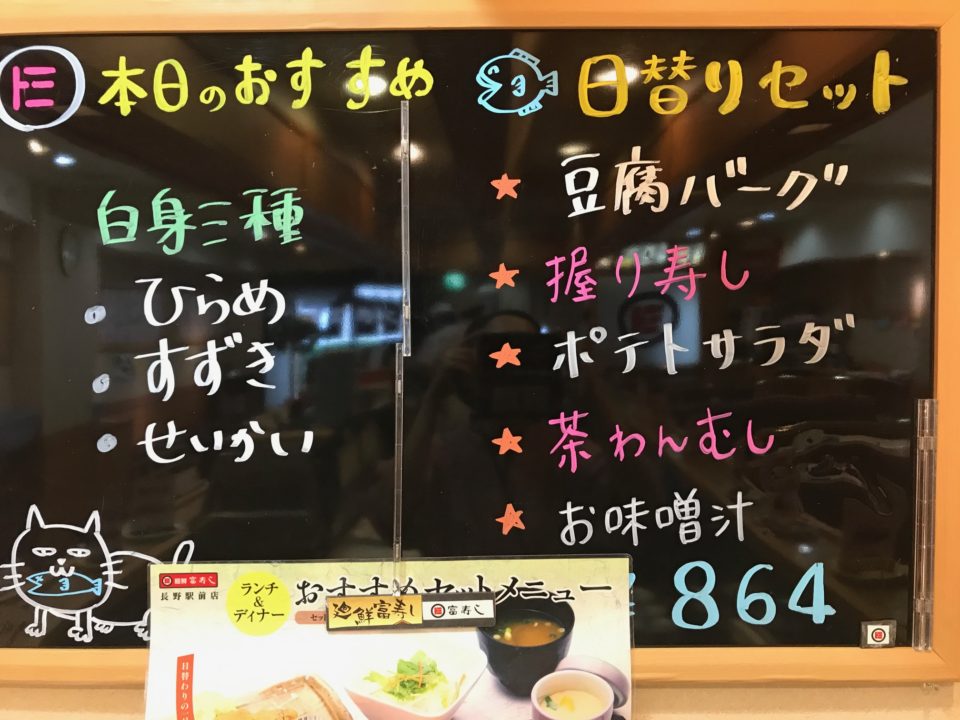 本日のおすすめ
白身三種
・ひらめ
・すずき
・せいかい
日替りセット
★豆腐バーグ
★握り寿し
★ポテトサラダ
★茶わんむし
★お味噌汁
864
廻鮮富寿し
長野駅前店
ランチ
&
ディナー
おすすめセットメニュー
廻鮮富寿し
富寿し